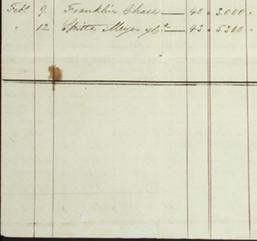 Feb. 9 Franklin Chase — 40 " 2.000 "
" 12 Spitta Meyer y Ca — 42 " 5.200 "